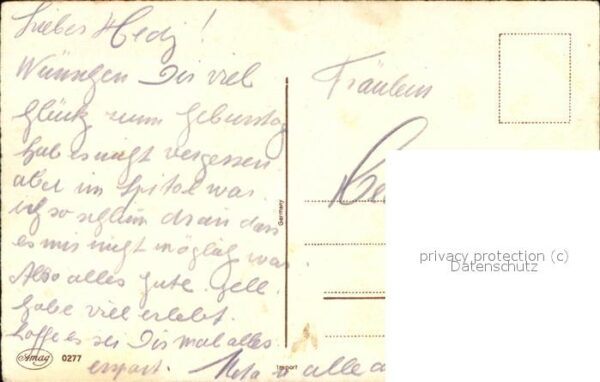 Liebes Hedj!
Wünschen Dir viel
Glück zum Geburtstag
hab es nicht vergessen
aber im Spital war
ich so schlim dran dass
es mir nicht möglich war.
Also alles gute. Gell.
habe viel erlebt.
hoffe es sei Dir mal alles
erspart. Meta u alle
Fräulein
Germany
Amag 0277
Import
privacy protection (c)
Datenschutz